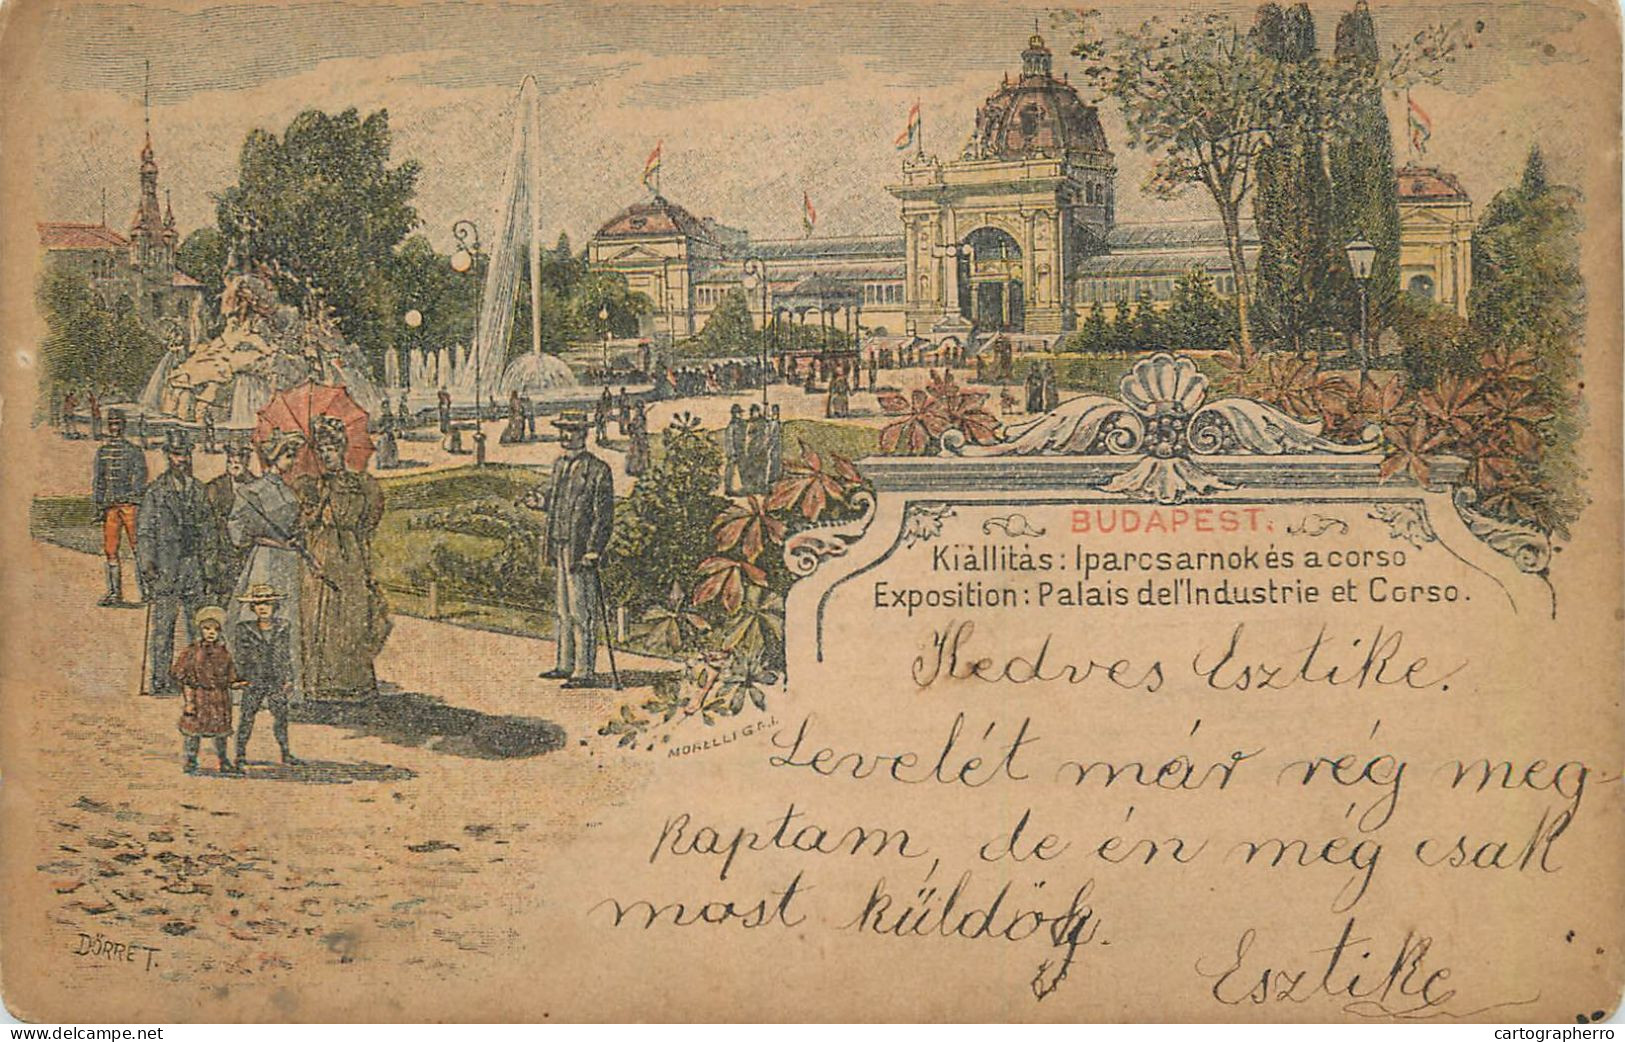 BUDAPEST.
Kiállitás: Iparcsarnok és a corso
Exposition: Palais de l'Industrie et Corso.
Kedves Esztike.
Levelét már rég meg-
kaptam, de én még csak
most küldök.
Esztike
MORELLI G.F.I.
DÖRRE T.
www.delcampe.net
cartographerro